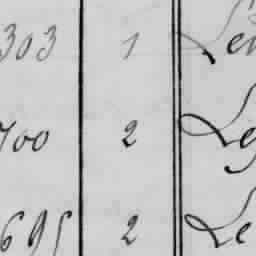 303 1 Le
700 2 Le
695 2 Le